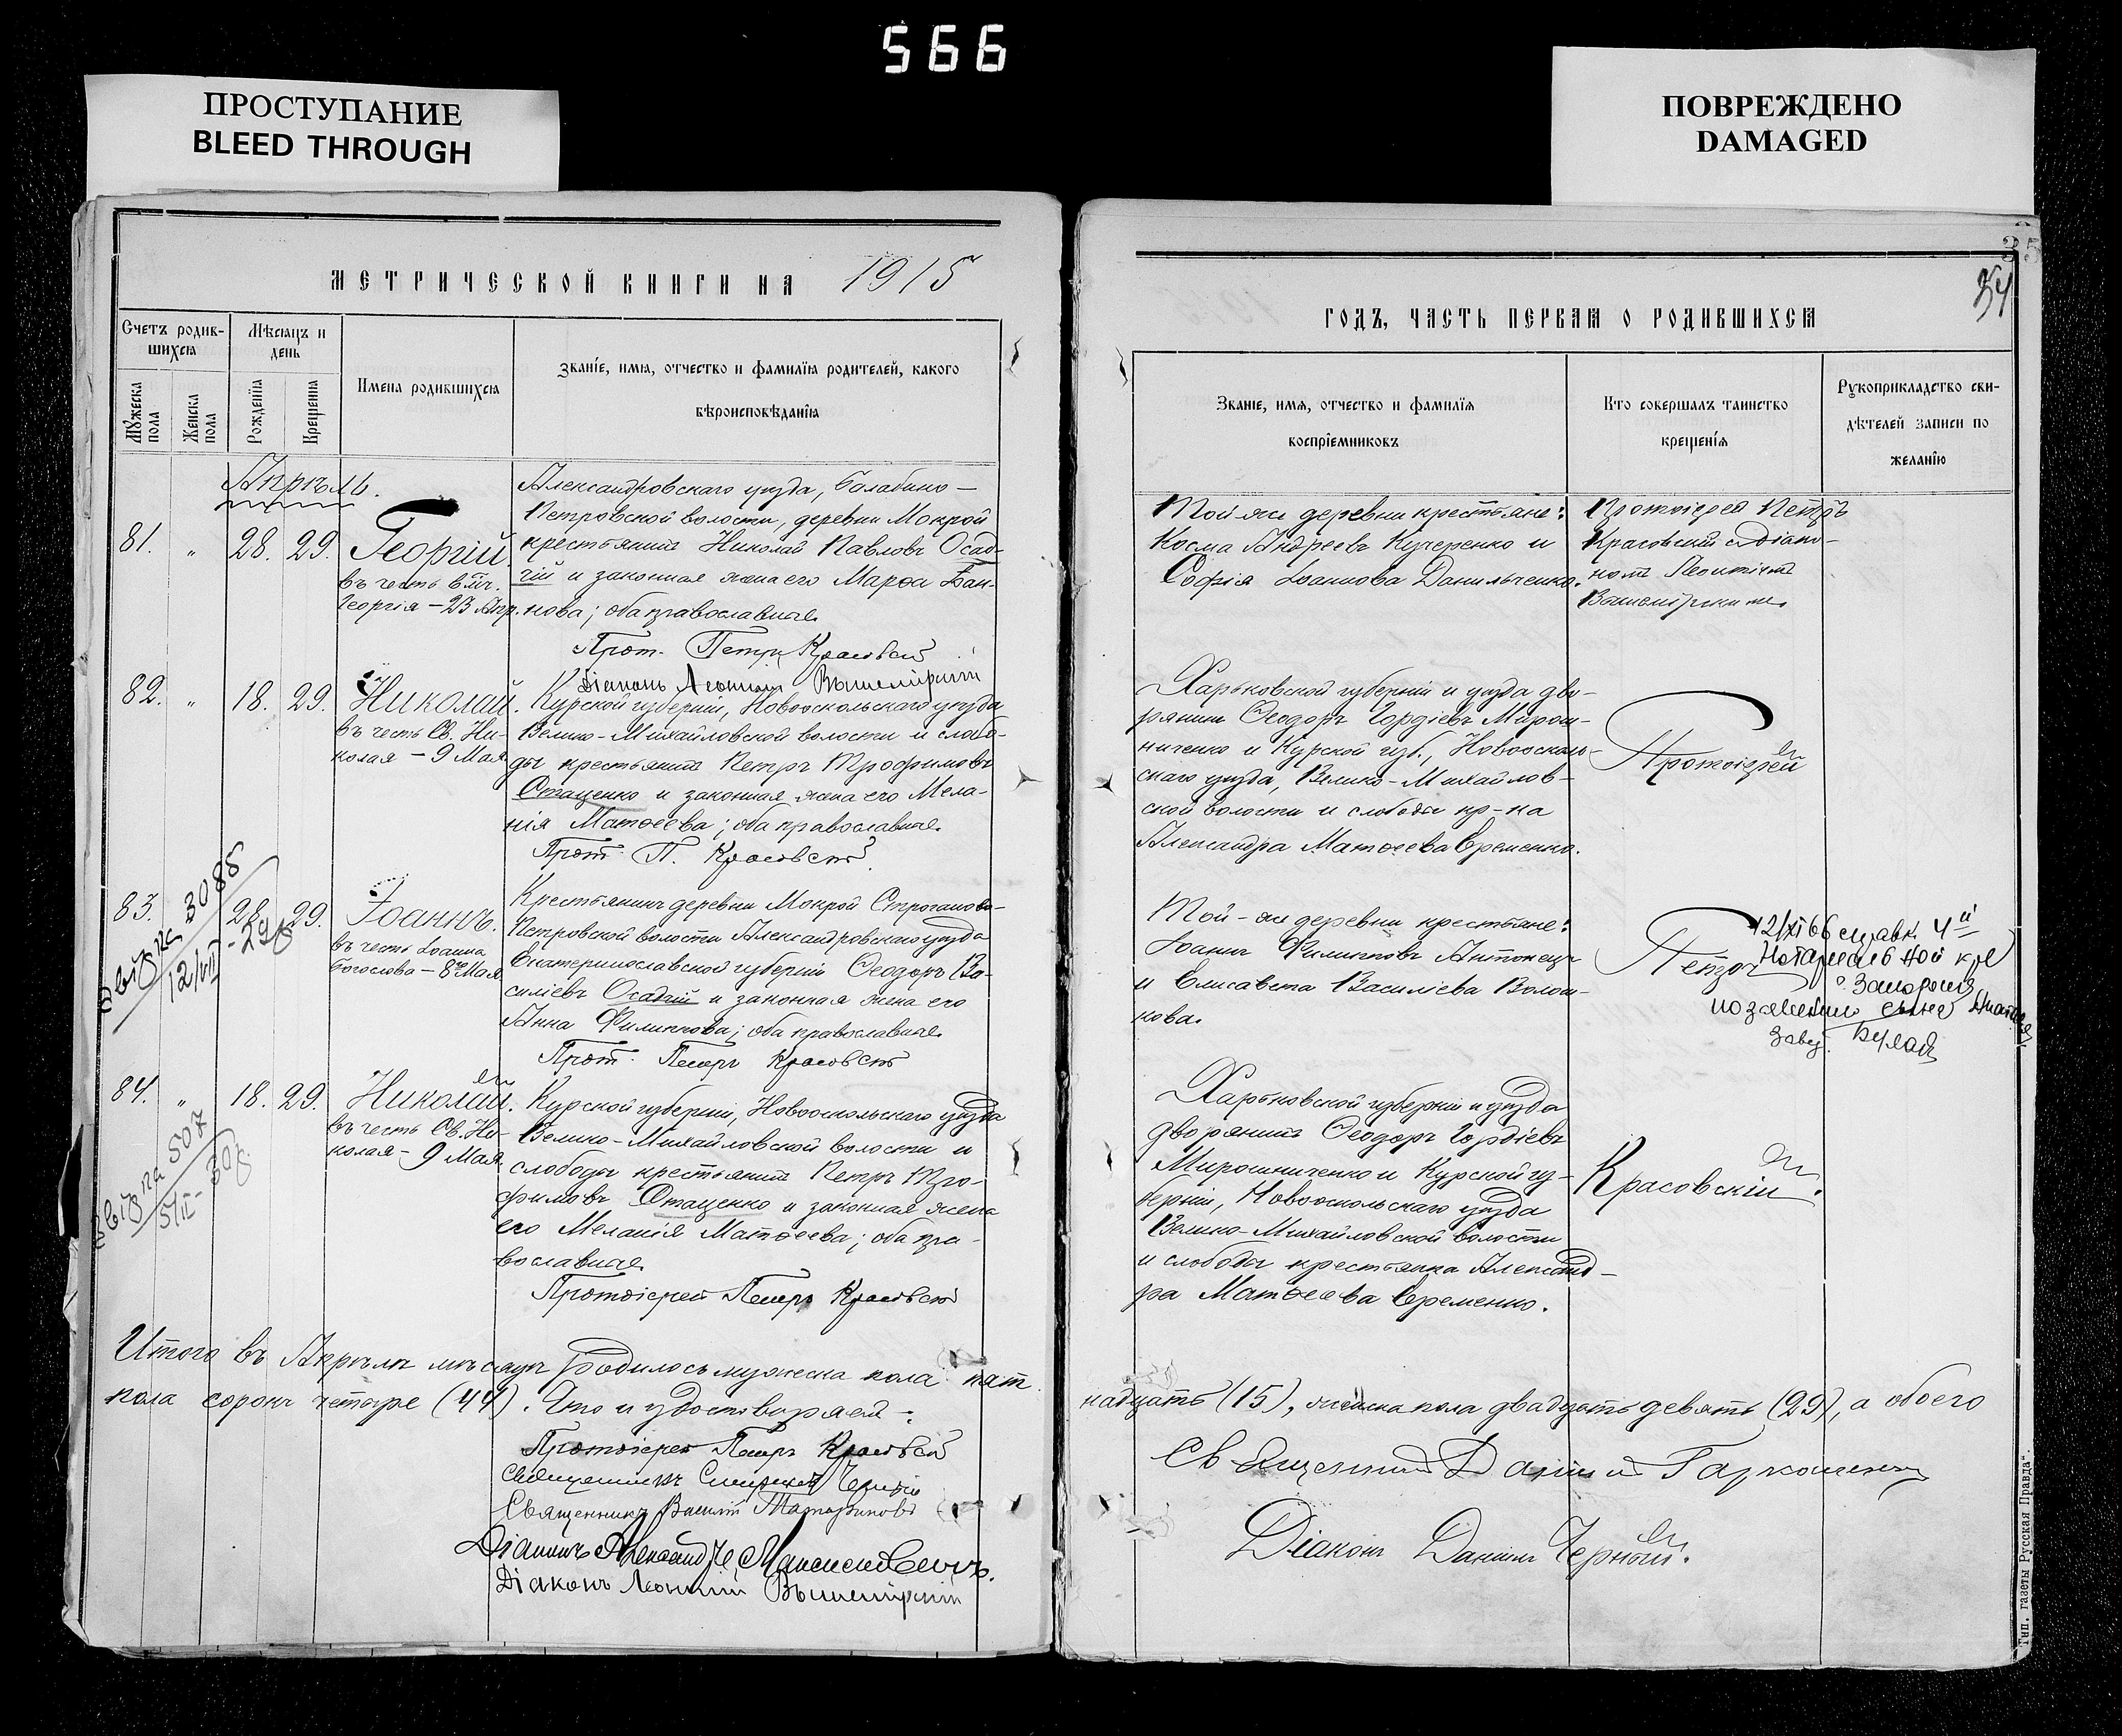 566
ПРОСТУПАНИЕ
BLEED THROUGH
ПОВРЕЖДЕНО
DAMAGED
МЕТРИЧЕСКОЙ КНИГИ НА 1915
Счетъ родив-
шихся
Мѣсяцъ и
день
Имена родившихся
Званіе, имя, отчество и фамилія родителей, какого
вѣроисповѣданія
Мужеска
пола
Женска
пола
Рожденія
Крещенія
Апрѣль.
81. " 28. 29. Георгій
въ честь в. мч.
Георгія – 23 Апр.
Александровскаго уѣзда, Балабино-
Петровской волости, деревни Мокрой
крестьянинъ Николай Павловъ Осад-
чій и законная жена его Марѳа Іоан-
нова; оба православные.
Прот. Петръ Красовскій
Діаконъ Леонтій Вышемірскій
82. " 18. 29. Николай.
въ честь Св. Ни-
колая – 9 Мая
Курской губерніи, Новооскольскаго уѣзда
Велико-Михайловской волости и слобо-
ды крестьянинъ Петръ Трофимовъ
Стаценко и законная жена его Мела-
нія Матѳеева; оба православные.
Прот. П. Красовскій
83. 28 29. Іоаннъ.
въ честь Іоанна
Богослова – 8го Мая
3085
12/VII
Крестьянинъ деревни Мокрой Строганово-
Петровской волости Александровскаго уѣзда
Екатеринославской губерніи Ѳеодоръ Ва-
силіевъ Осадчій и законная жена его
Анна Филиппова; оба православные.
Прот. Петръ Красовскій
84. " 18. 29. Николай.
въ честь Св. Ни-
колая – 9 Мая.
507
5/II
Курской губерніи, Новооскольскаго уѣзда
Велико-Михайловской волости и
слободы крестьянинъ Петръ Тро-
фимовъ Стаценко и законная жена
его Меланія Матѳеева; оба пра-
вославные.
Протоіерей Петръ Красовскій
Итого въ Апрѣлѣ мѣсяцѣ родилось мужеска пола пят
пола сорокъ четыре (44). Что и удостовѣряемъ:
Протоіерей Петръ Красовскій
Священникъ
Священникъ Василій
Діаконъ Александръ
Діаконъ Леонтій Вышемірскій
35
34
ГОДЪ, ЧАСТЬ ПЕРВАЯ О РОДИВШИХСЯ
Званіе, имя, отчество и фамилія
воспріемниковъ
Кто совершалъ таинство
крещенія
Рукоприкладство сви-
дѣтелей записи по
желанію
Той-же деревни крестьяне:
Косма Андреевъ Кучеренко и
Софія Іоаннова Данильченко.
Протоіерей Петръ
Красовскій съ діако-
номъ Леонтіемъ
Вышемірскимъ.
Харьковской губерніи и уѣзда дво-
рянинъ Ѳеодоръ Гордіевъ Мирош-
ниченко и Курской губ., Новоосколь-
скаго уѣзда, Велико-Михайлов-
ской волости и слободы кр-ка
Александра Матѳеева Еременко.
Протоіерей
Той-же деревни крестьяне:
Іоаннъ Филипповъ Антонецъ
и Елисавета Василіева Волош-
кова.
Петръ
12/XI 66 справк. 4й
Нотариальной
г. Запорожья
Зав.
Харьковской губерніи и уѣзда
дворянинъ Ѳеодоръ Гордіевъ
Мирошниченко и Курской гу-
берніи, Новооскольскаго уѣзда
Велико-Михайловской волости
и слободы крестьянка Александ-
ра Матѳеева Еременко.
Красовскій.
надцать (15), женска пола двадцать девять (29), а обоего
Священникъ
Діаконъ Даніилъ Черный.
Тип. газеты Русская Правда".